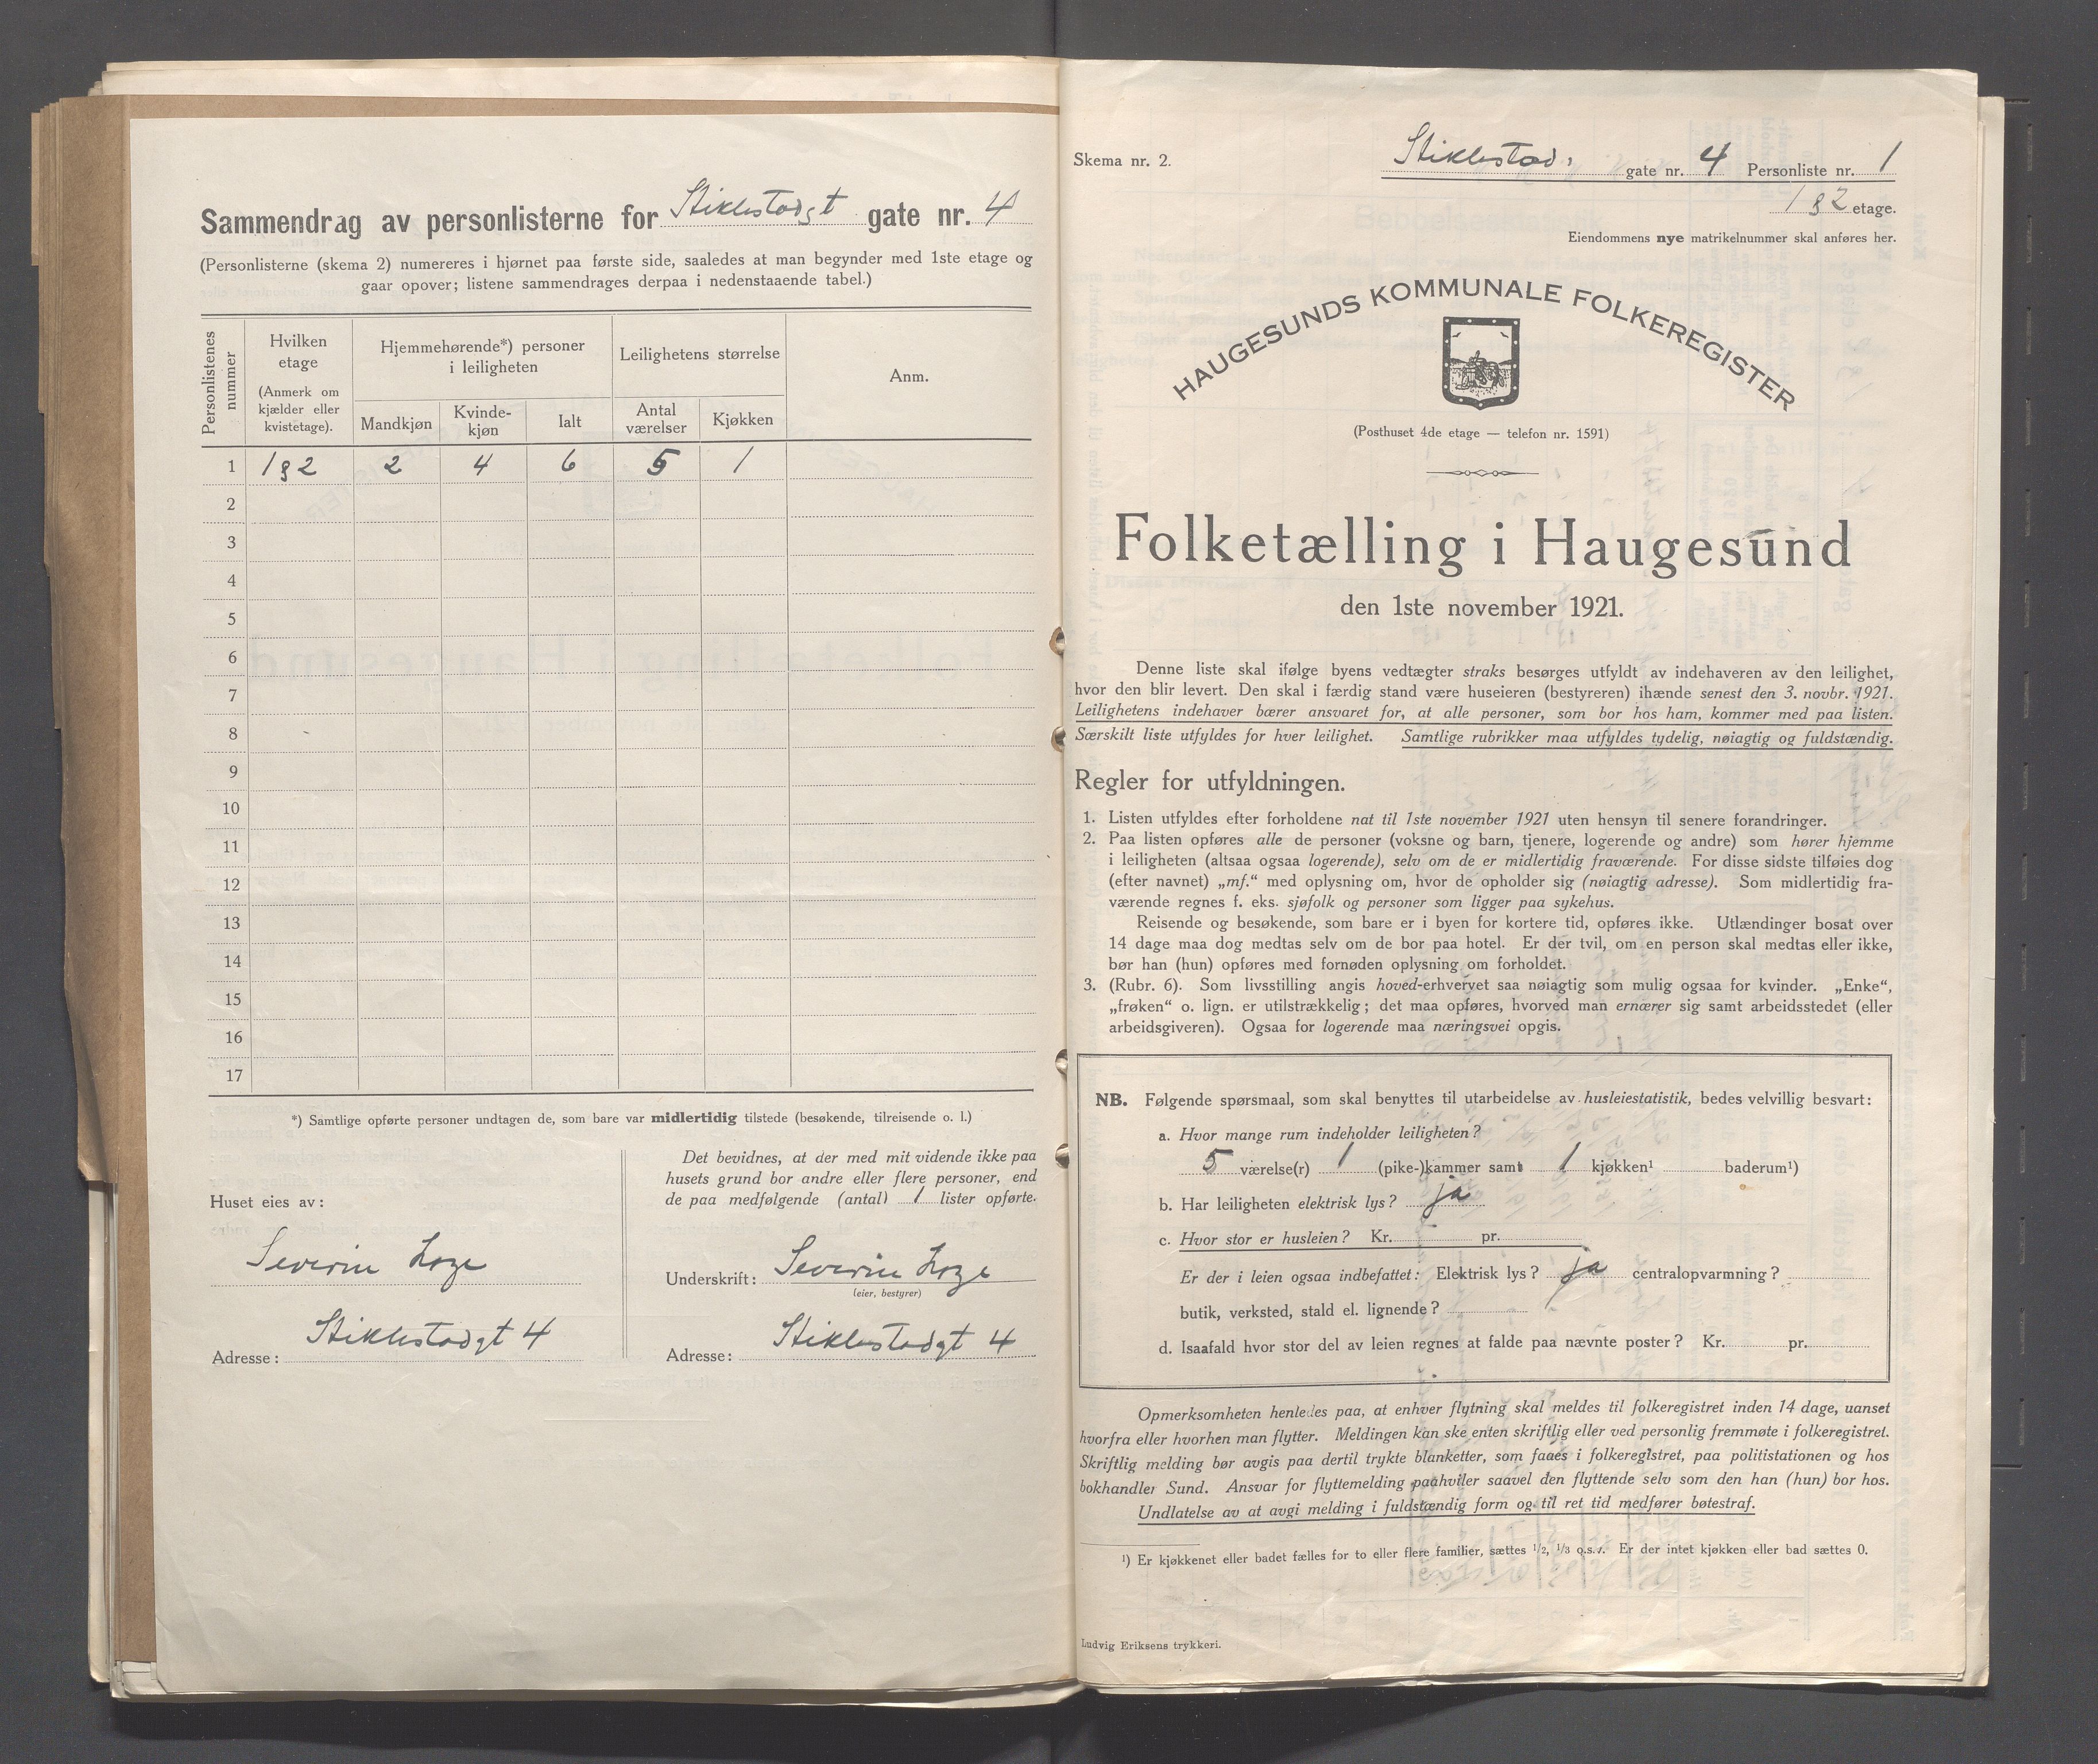 Sammendrag av personlisterne for Stiklestadgt gate nr. 4
(Personlisterne (skema 2) numereres i hjørnet paa første side, saaledes at man begynder med 1ste etage og
gaar opover; listene sammendrages derpaa i nedenstaaende tabel.)
Personlistenes nummer
Hvilken etage
(Anmerk om kjælder eller kvistetage).
Hjemmehørende*) personer i leiligheten
Mandkjøn
Kvindekjøn
Ialt
Leilighetens størrelse
Antal værelser
Kjøkken
Anm.
1 1 & 2 2 4 6 5 1
2
3
4
5
6
7
8
9
10
11
12
13
14
15
16
17
*) Samtlige opførte personer undtagen de, som bare var midlertidig tilstede (besøkende, tilreisende o. l.)
Huset eies av:
Severin
Adresse: Stiklestadgt 4
Det bevidnes, at der med mit vidende ikke paa
husets grund bor andre eller flere personer, end
de paa medfølgende (antal) 1 lister opførte.
Underskrift: Severin
(eier, bestyrer)
Adresse: Stiklestadgt 4
Skema nr. 2.
Stiklestads gate nr. 4 Personliste nr. 1
1 & 2 etage.
Eiendommens nye matrikelnummer skal anføres her.
HAUGESUNDS KOMMUNALE FOLKEREGISTER
(Posthuset 4de etage — telefon nr. 1591)
Folketælling i Haugesund
den 1ste november 1921.
Denne liste skal ifølge byens vedtægter straks besørges utfyldt av indehaveren av den leilighet,
hvor den blir levert. Den skal i færdig stand være huseieren (bestyreren) ihænde senest den 3. novbr. 1921.
Leilighetens indehaver bærer ansvaret for, at alle personer, som bor hos ham, kommer med paa listen.
Særskilt liste utfyldes for hver leilighet. Samtlige rubrikker maa utfyldes tydelig, nøiagtig og fuldstændig.
Regler for utfyldningen.
1. Listen utfyldes efter forholdene nat til 1ste november 1921 uten hensyn til senere forandringer.
2. Paa listen opføres alle de personer (voksne og barn, tjenere, logerende og andre) som hører hjemme
i leiligheten (altsaa ogsaa logerende), selv om de er midlertidig fraværende. For disse sidste tilføies dog
(efter navnet) „mf.“ med oplysning om, hvor de opholder sig (nøiagtig adresse). Som midlertidig fra-
værende regnes f. eks. sjøfolk og personer som ligger paa sykehus.
Reisende og besøkende, som bare er i byen for kortere tid, opføres ikke. Utlændinger bosat over
14 dage maa dog medtas selv om de bor paa hotel. Er der tvil, om en person skal medtas eller ikke,
bør han (hun) opføres med fornøden oplysning om forholdet.
3. (Rubr. 6). Som livsstilling angis hoved-erhvervet saa nøiagtig som mulig ogsaa for kvinder. „Enke“,
„frøken“ o. lign. er utilstrækkelig; det maa opføres, hvorved man ernærer sig samt arbeidsstedet (eller
arbeidsgiveren). Ogsaa for logerende maa næringsvei opgis.
NB. Følgende spørsmaal, som skal benyttes til utarbeidelse av husleiestatistik, bedes velvillig besvart:
a. Hvor mange rum indeholder leiligheten?
5 værelse(r) 1 (pike-)kammer samt 1 kjøkken¹ baderum¹)
b. Har leiligheten elektrisk lys? ja
c. Hvor stor er husleien? Kr. pr.
Er der i leien ogsaa indbefattet: Elektrisk lys? ja centralopvarmning?
butik, verksted, stald el. lignende?
d. Isaafald hvor stor del av leien regnes at falde paa nævnte poster? Kr. pr.
Opmerksomheten henledes paa, at enhver flytning skal meldes til folkeregistret inden 14 dage, uanset
hvorfra eller hvorhen man flytter. Meldingen kan ske enten skriftlig eller ved personlig fremmøte i folkeregistret.
Skriftlig melding bør avgis paa dertil trykte blanketter, som faaes i folkeregistret, paa politistationen og hos
bokhandler Sund. Ansvar for flyttemelding paahviler saavel den flyttende selv som den han (hun) bor hos.
Undlatelse av at avgi melding i fuldstændig form og til ret tid medfører bøtestraf.
¹) Er kjøkkenet eller badet fælles for to eller flere familier, sættes ½, ⅓ o.s.v. Er der intet kjøkken eller bad sættes 0.
Ludvig Eriksens trykkeri.